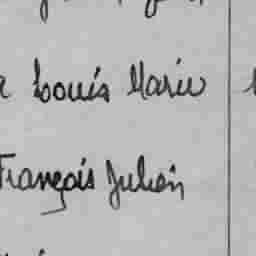 Louis Marie
François Julien